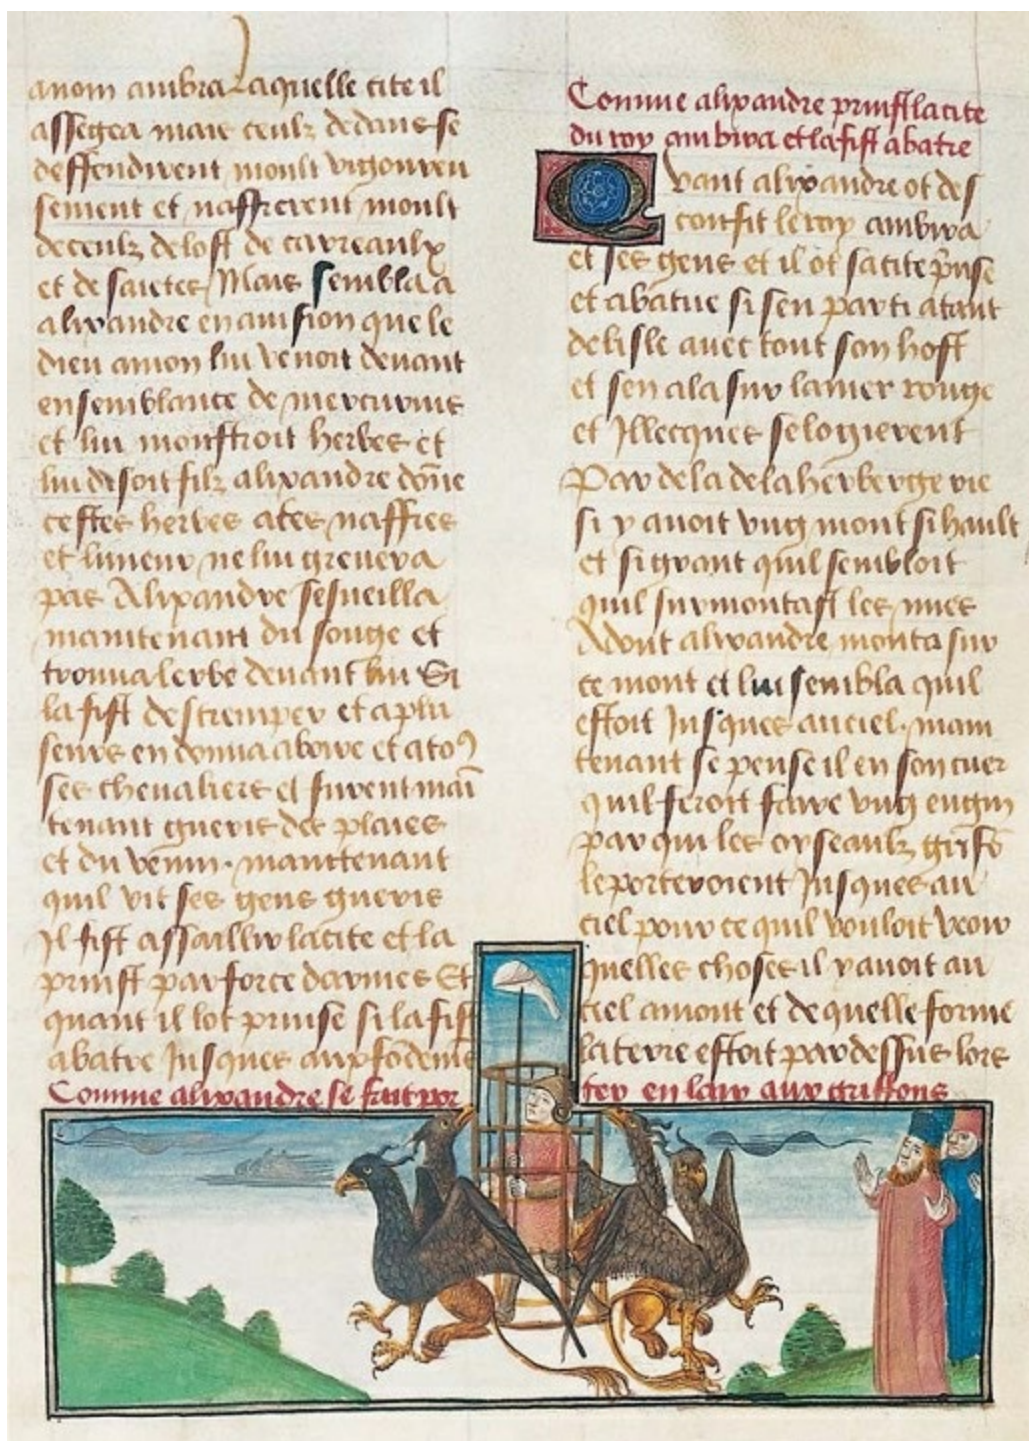 anom ambra Laquelle cite il
assegea mais ceulz dedans se
deffendirent moult vigoureu
sement et naffrerent moult
de ceulz de lost de carreaulx
et de saietes Mais sembla a
alixandre en auision que le
dieu amon lui venoit deuant
en semblance de mercurius
et lui monstroit herbes et
lui disoit filz alixandre dōne
cestes herbes a tes naffres
et venin ne lui greuera
pas Alixandre sesueilla
maintenant du songe et
trouua lerbe deuant lui Si
la fist destremper et a plu
seurs en donna a boire et a toꝰ
ses cheualiers et furent mai
tenant gueris des plaies
et du venin. maintenant
quil vit ses gens gueris
Il fist assaillir la cite et la
prinst par force darmes Et
quant il lot prinse si la fist
abatre Jusques aux fōdemens
Comme alixandre se fait por
Comme alixandre prinst la cite
du roy ambira et la fist abatre
Quant alixandre ot des
confit le roy ambira
et ses gens et il ot sa cite pꝛinse
et abatue si sen parti atant
de lisle auec tout son host
et sen ala sur la mer rouge
et Jllecques se logierent
Par dela de la herberge rie
si y auoit vng mont si hault
et si grant quil sembloit
quil surmontast les nues
Adont alixandre monta sur
ce mont et lui sembla quil
estoit Jusques au ciel. main
tenant se pense il en son cuer
quil feroit faire vng engin
par qui les oyseaulz grifōs
le porteroient Jusques au
ciel pour ce quil vouloit veoir
quelles choses il y auoit au
ciel amont et de quelle forme
la terre estoit par dessus lors
ter en lair aux griffons